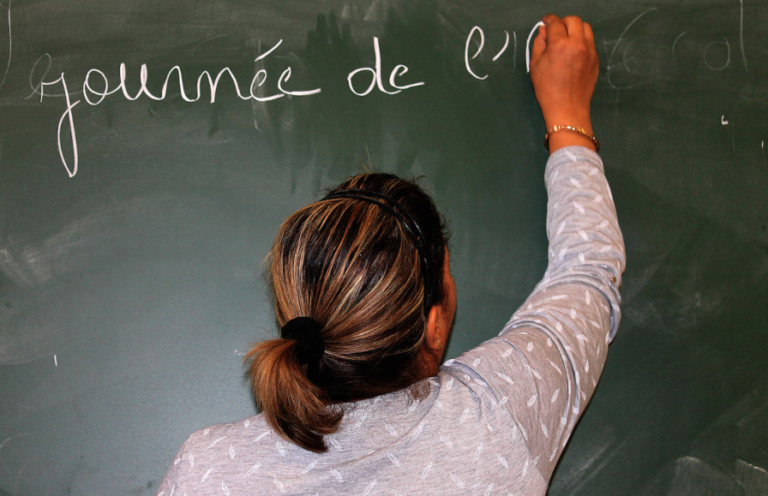 journée de l'